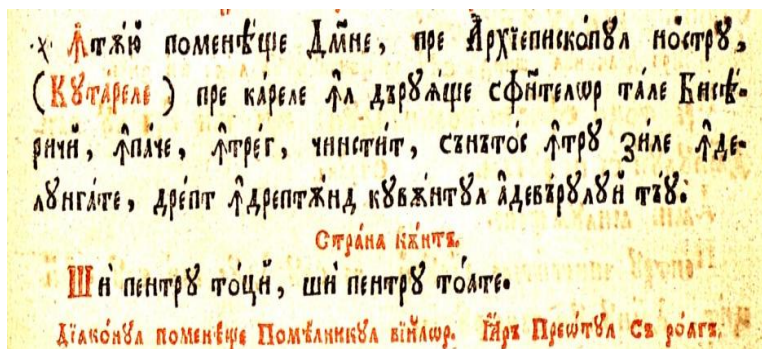 ·х· Ꙟтѫю поменѣще Дмⷭне, пре Архїепископꙋл нострꙋ,
(Кꙋтареле) пре кареле ꙟл дърꙋѧще сфⷩтелѡр тале Бисѣ-
ричй, ꙟпаче, ꙟтрег, чинстит, сънътос ꙟтрꙋ Ꙁиле ꙟде-
лꙋнгате, дрепт ꙟдрептѫнд кꙋвѫнтꙋл адевърꙋлꙋй тъꙋ.
Страна кѫнтъ.
Шѝ пентрꙋ тоцй, шѝ пентрꙋ тоате.
Дїаконꙋл поменѣще Помѣлникꙋл вїилѡр. Ꙗръ Преѡтꙋл съ роагъ.